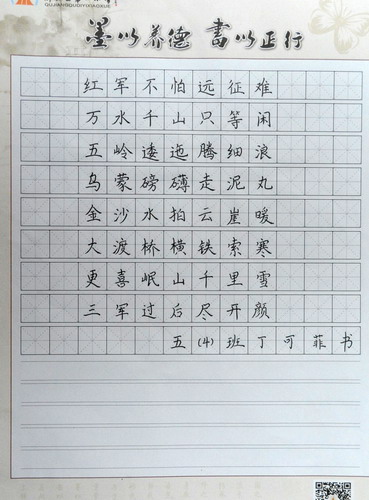 墨以养德 書以正行
红军不怕远征难
万水千山只等闲
五岭逶迤腾细浪
乌蒙磅礴走泥丸
金沙水拍云崖暖
大渡桥横铁索寒
更喜岷山千里雪
三军过后尽开颜
五(4)班丁可菲书